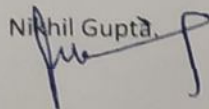 Nikhil Gupta